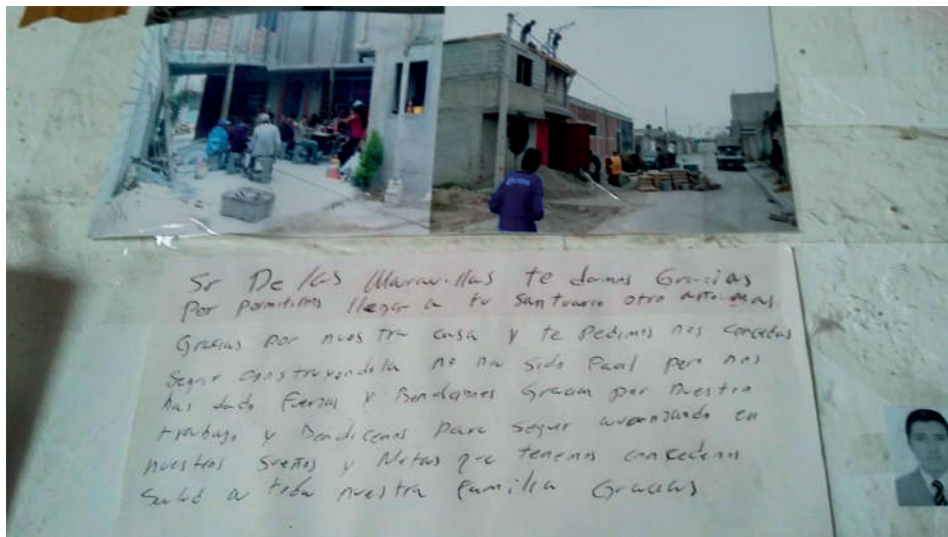 Sr De las Maravillas te damos Gracias
Por permitirnos llegar a tu Santuario otro año mas
Gracias por nuestra casa y te Pedimos nos concedas
Seguir construyendola no ha sido Facil pero nos
has dado Fuerzas y Bendiciones Gracias por nuestro
trabajo y Bendicenos Para Seguir avanzando en
nuestros Sueños y Metas que tenemos concedenos
Salud a toda nuestra Familia Gracias